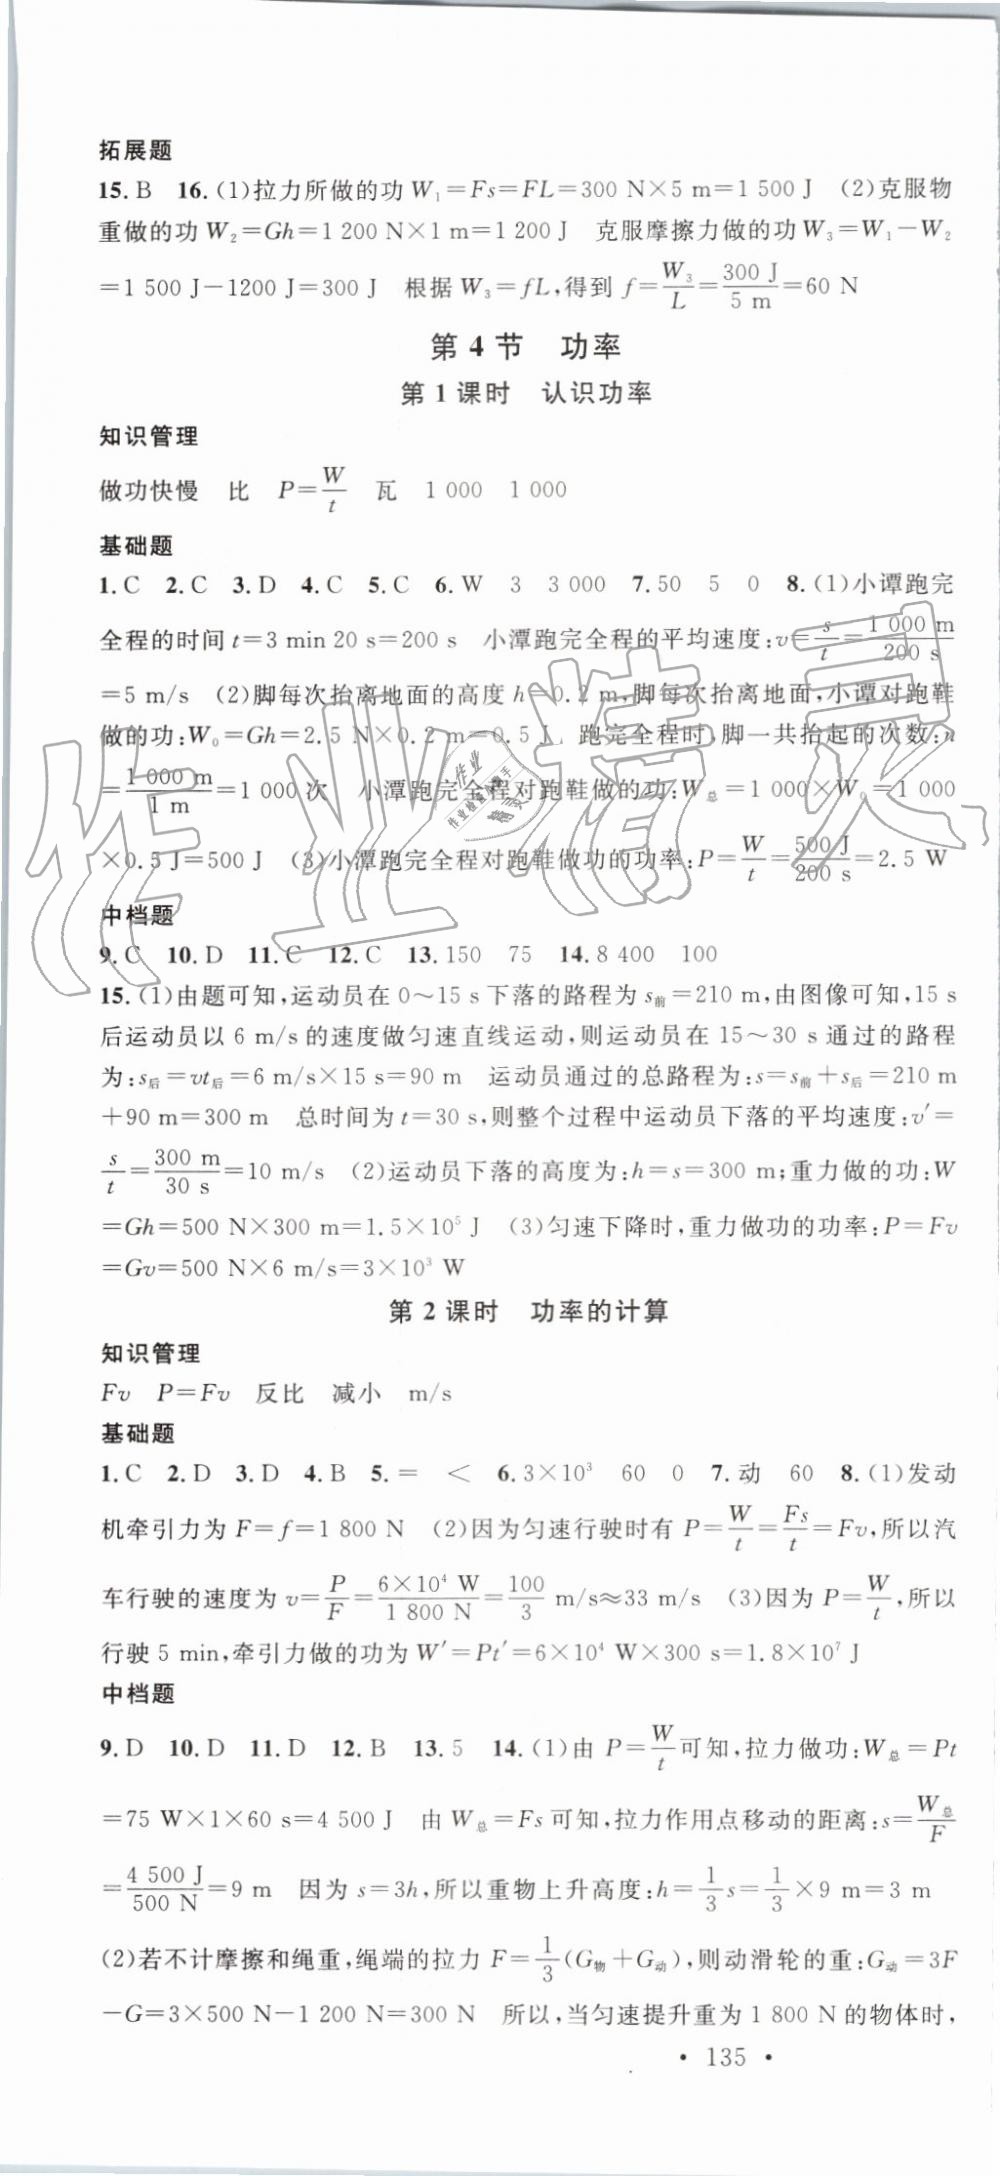 拓展题
15.B 16.(1)拉力所做的功W₁=Fs=FL=300 N×5 m=1 500 J (2)克服物
重做的功W₂=Gh=1 200 N×1 m=1 200 J 克服摩擦力做的功W₃=W₁-W₂
=1 500 J-1200 J=300 J 根据W₃=fL,得到f=W₃/L=300 J/5 m=60 N
第4节 功率
第1课时 认识功率
知识管理
做功快慢 比 P=W/t 瓦 1 000 1 000
基础题
1.C 2.C 3.D 4.C 5.C 6.W 3 3 000 7.50 5 0 8.(1)小谭跑完
全程的时间t=3 min 20 s=200 s 小潭跑完全程的平均速度:v=s/t=1 000 m/200 s
=5 m/s (2)脚每次抬离地面的高度h=0.2 m,脚每次抬离地面,小谭对跑鞋
做的功:W₀=Gh=2.5 N×0.2 m=0.5 J 跑完全程时,脚一共抬起的次数:n
=1 000 m/1 m=1 000次 小潭跑完全程对跑鞋做的功:W总=1 000×W₀=1 000
×0.5 J=500 J (3)小潭跑完全程对跑鞋做功的功率:P=W/t=500 J/200 s=2.5 W
中档题
9.C 10.D 11.C 12.C 13.150 75 14.8 400 100
15.(1)由题可知,运动员在0~15 s下落的路程为s前=210 m,由图像可知,15 s
后运动员以6 m/s的速度做匀速直线运动,则运动员在15~30 s通过的路程
为:s后=vt后=6 m/s×15 s=90 m 运动员通过的总路程为:s=s前+s后=210 m
+90 m=300 m 总时间为t=30 s,则整个过程中运动员下落的平均速度:v′=
s/t=300 m/30 s=10 m/s (2)运动员下落的高度为:h=s=300 m;重力做的功:W
=Gh=500 N×300 m=1.5×10⁵ J (3)匀速下降时,重力做功的功率:P=Fv
=Gv=500 N×6 m/s=3×10³ W
第2课时 功率的计算
知识管理
Fv P=Fv 反比 减小 m/s
基础题
1.C 2.D 3.D 4.B 5.= < 6.3×10³ 60 0 7.动 60 8.(1)发动
机牵引力为F=f=1 800 N (2)因为匀速行驶时有P=W/t=Fs/t=Fv,所以汽
车行驶的速度为v=P/F=6×10⁴ W/1 800 N=100/3 m/s≈33 m/s (3)因为P=W/t,所以
行驶5 min,牵引力做的功为W′=Pt′=6×10⁴ W×300 s=1.8×10⁷ J
中档题
9.D 10.D 11.D 12.B 13.5 14.(1)由P=W/t可知,拉力做功:W总=Pt
=75 W×1×60 s=4 500 J 由W总=Fs可知,拉力作用点移动的距离:s=W总/F
=4 500 J/500 N=9 m 因为s=3h,所以重物上升高度:h=1/3s=1/3×9 m=3 m
(2)若不计摩擦和绳重,绳端的拉力F=1/3(G物+G动),则动滑轮的重:G动=3F
-G=3×500 N-1 200 N=300 N 所以,当匀速提升重为1 800 N的物体时,
· 135 ·
作业精灵